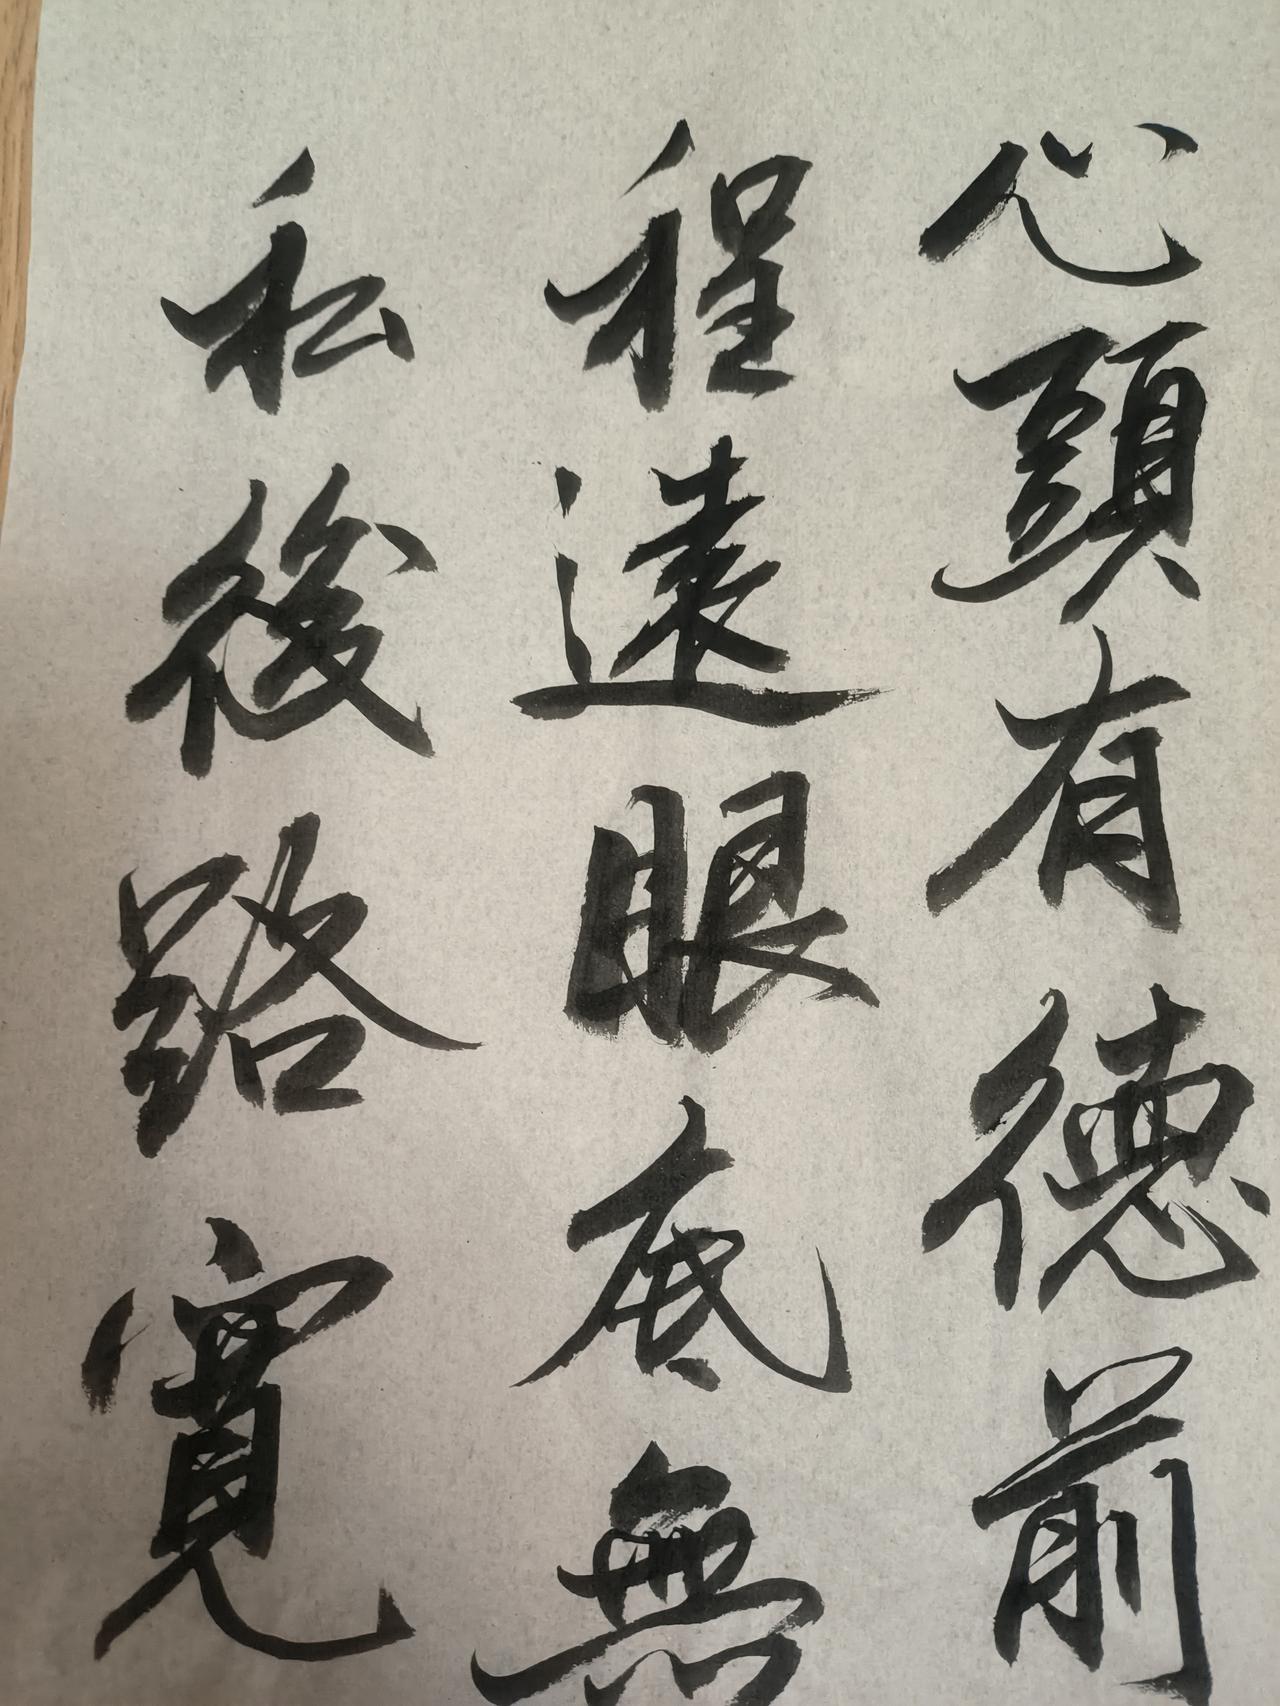 心頭有德前
程遠眼底無
私後路寬